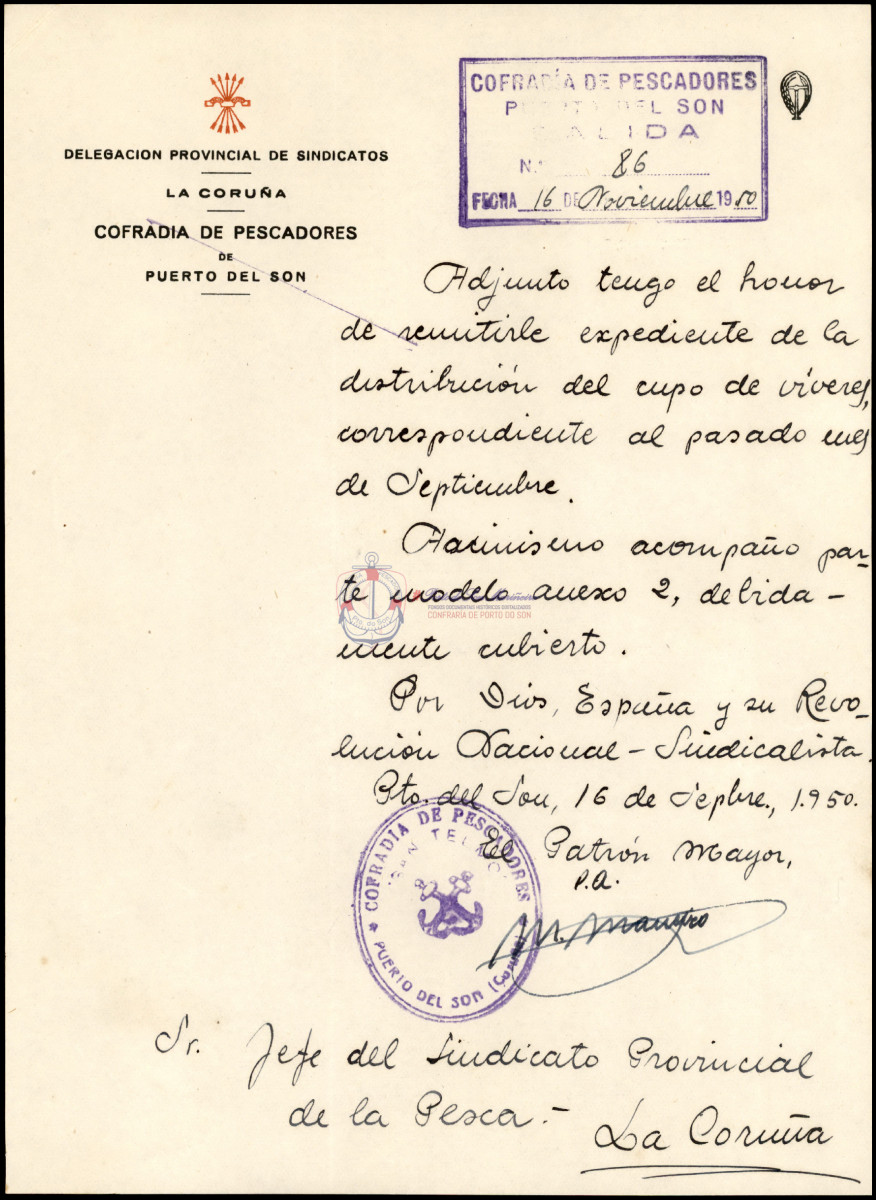 DELEGACION PROVINCIAL DE SINDICATOS
LA CORUÑA
COFRADIA DE PESCADORES
DE
PUERTO DEL SON
COFRADÍA DE PESCADORES
PUERTO DEL SON
SALIDA
N.º 86
FECHA 16 DE Noviembre 1950
Adjunto tengo el honor
de remitirle expediente de la
distribución del cupo de víveres,
correspondiente al pasado mes
de Septiembre.
Hacimismo acompaño par-
te modelo anexo 2, debida-
mente cubierto.
Por Dios, España y su Revo-
lución Nacional-Sindicalista.
Pto. del Son, 16 de Sepbre., 1.950.
El Patrón Mayor,
P.A.
M. Maneiro
COFRADIA DE PESCADORES
"SAN TELMO"
PUERTO DEL SON (Coruña)
Pto. do Son
FONDOS DOCUMENTAIS HISTÓRICOS DIXITALIZADOS
CONFRARÍA DE PORTO DO SON
Sr. Jefe del Sindicato Provincial
de la Pesca.-
La Coruña